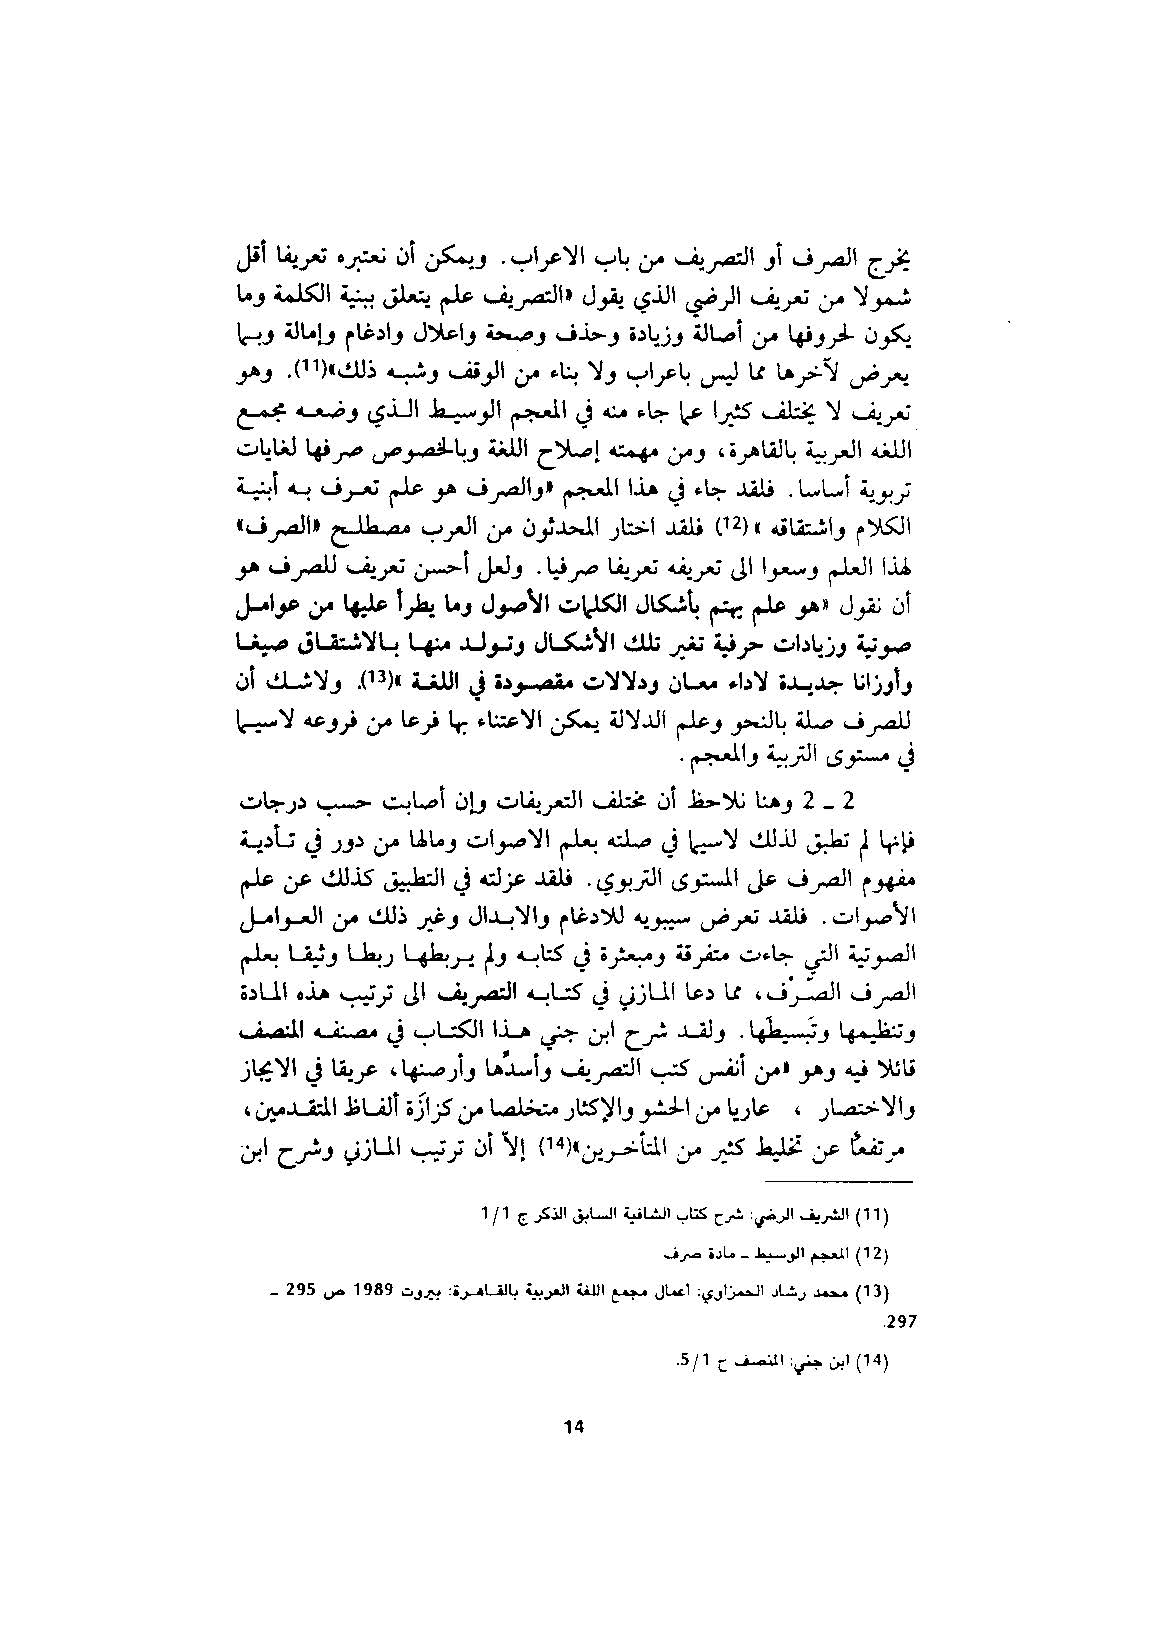 يخرج الصرف أو التصريف من باب الاعراب. ويمكن أن نعتبره تعريفا أقل
شمولا من تعريف الرضي الذي يقول «التصريف علم يتعلق ببنية الكلمة وما
يكون لحروفها من أصالة وزيادة وحذف وصحة واعلال وادغام وإمالة وبما
يعرض لآخرها مما ليس باعراب ولا بناء من الوقف وشبه ذلك»(11). وهو
تعريف لا يختلف كثيرا عما جاء منه في المعجم الوسيط الذي وضعه مجمع
اللغه العربية بالقاهرة، ومن مهمته إصلاح اللغة وبالخصوص صرفها لغايات
تربوية أساسا. فلقد جاء في هذا المعجم «والصرف هو علم تعرف به أبنية
الكلام واشتقاقه »(12) فلقد اختار المحدثون من العرب مصطلح «الصرف»
لهذا العلم وسعوا الى تعريفه تعريفا صرفيا. ولعل أحسن تعريف للصرف هو
أن نقول «هو علم يهتم بأشكال الكلمات الأصول وما يطرأ عليها من عوامل
صوتية وزيادات حرفية تغير تلك الأشكال وتولد منها بالاشتقاق صيغا
وأوزانا جديدة لاداء معان ودلالات مقصودة في اللغة »(13). ولاشك أن
للصرف صلة بالنحو وعلم الدلالة يمكن الاعتناء بها فرعا من فروعه لاسيما
في مستوى التربية والمعجم.
2 ـ 2 وهنا نلاحظ أن مختلف التعريفات وإن أصابت حسب درجات
فإنها لم تطبق لذلك لاسيما في صلته بعلم الاصوات ومالها من دور في تأدية
مفهوم الصرف على المستوى التربوي. فلقد عزلته في التطبيق كذلك عن علم
الأصوات. فلقد تعرض سيبويه للادغام والابدال وغير ذلك من العوامل
الصوتية التي جاءت متفرقة ومبعثرة في كتابه ولم يربطها ربطا وثيقا بعلم
الصرف الصّرْف، مما دعا المازني في كتابه التصريف الى ترتيب هذه المادة
وتنظيمها وتَبسيطَها. ولقد شرح ابن جني هذا الكتاب في مصنفه المنصف
قائلا فيه وهو «من أنفس كتب التصريف وأسدّها وأرصنها، عريقا في الايجاز
والاختصار ، عاريا من الحشو والإكثار متخلصا من كزازَة ألفاظ المتقدمين،
مرتفعًا عن تخليط كثير من المتأخرين»(14) إلاّ أن ترتيب المازني وشرح ابن
(11) الشريف الرضي: شرح كتاب الشافية السابق الذكر ج 1/1
(12) المعجم الوسيط ـ مادة صرف
(13) محمد رشاد الحمزاوي: أعمال مجمع اللغة العربية بالقاهرة: بيروت 1989 ص 295 ـ
297.
(14) ابن جني: المنصف ج 5/1.
14